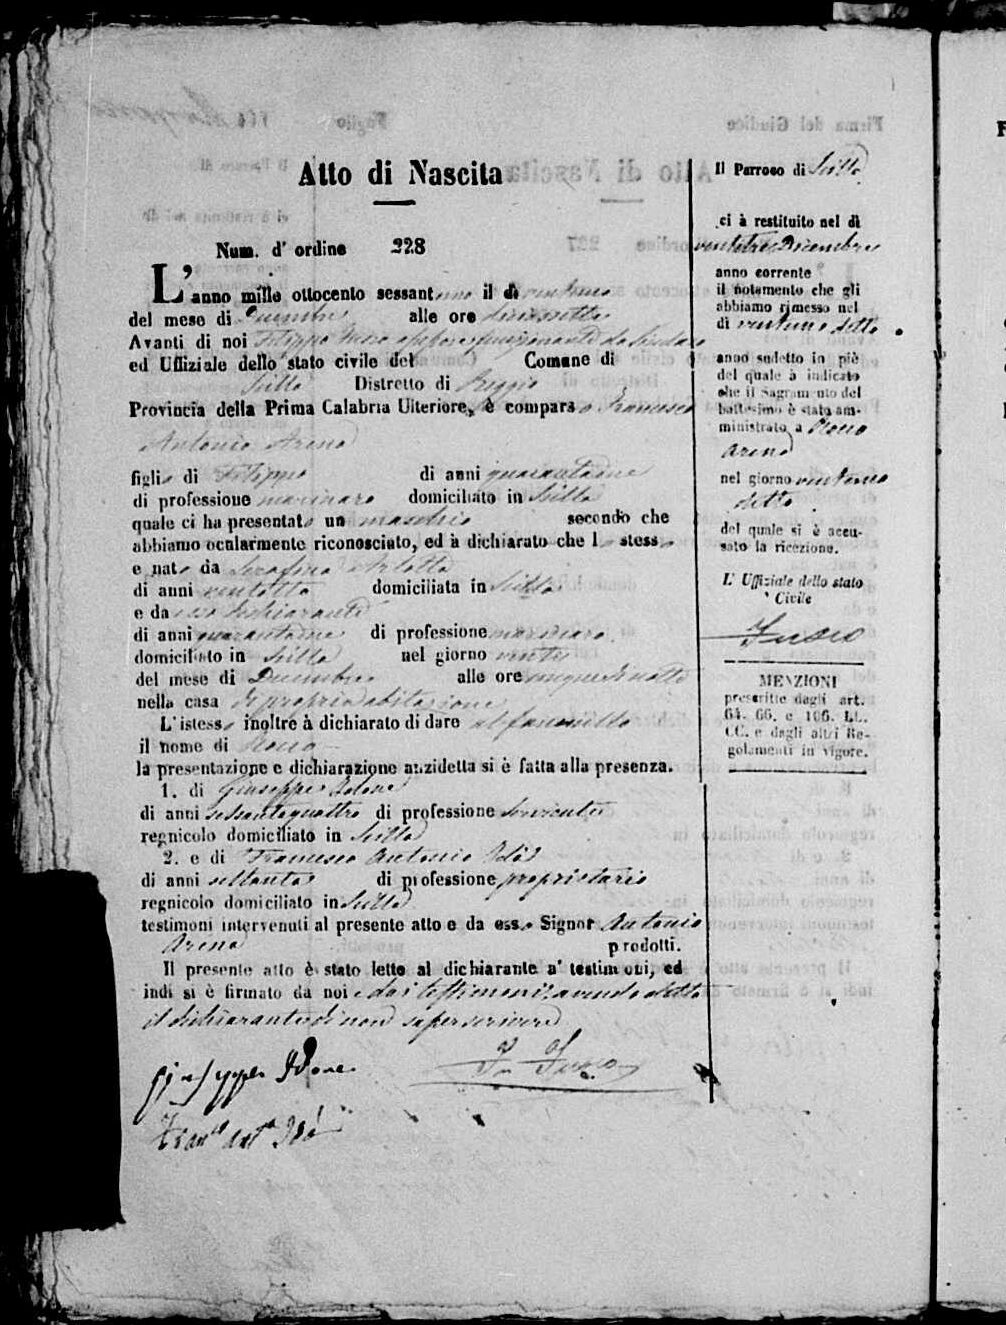 Atto di Nascita
Num. d' ordine 228
L' anno mille ottocento sessantuno il dì ventuno
del mese di Decembre alle ore diciassette
Avanti di noi Filippo da Sindaco
ed Uffiziale dello stato civile del Comune di
Scilla Distretto di Reggio
Provincia della Prima Calabria Ulteriore, è comparso Francesco
Antonio Arena
figlio di Filippo di anni quarantadue
di professione marinaro domiciliato in Scilla
quale ci ha presentato un maschio secondo che
abbiamo ocularmente riconosciuto, ed à dichiarato che lo stesso
e nato da Serafina
di anni ventotto domiciliata in Scilla
e da esso dichiarante
di anni quarantadue di professione marinaro
domiciliato in Scilla nel giorno venti
del mese di Decembre alle ore cinque di notte
nella casa di propria abitazione
L' istesso inoltre à dichiarato di dare al fanciullo
il nome di Rocco
la presentazione e dichiarazione anzidetta si è fatta alla presenza.
1. di Giuseppe Idone
di anni sessantaquattro di professione serviente
regnicolo domiciliato in Scilla
2. e di Francesco Antonio Idà
di anni settanta di professione proprietario
regnicolo domiciliato in Scilla
testimoni intervenuti al presente atto e da esso Signor Antonio
Arena prodotti.
Il presente atto è stato letto al dichiarante a' testimoni, ed
indi si è firmato da noi e dai testimoni avendo detto
il dichiarante di non saper scrivere
Giuseppe Idone
Franco Anto Idà
Il Parroco di Scilla
ci à restituito nel dì
ventitre Decembre
anno corrente
il notamento che gli
abbiamo rimesso nel
di ventuno detto
anno sudetto in piè
del quale à indicato
che il Sagramento del
battesimo è stato am-
ministrato a Rocco
Arena
nel giorno ventuno
detto
del quale si è accu-
sato la ricezione.
L' Uffiziale dello stato
Civile
MENZIONI
prescritte dagli art.
64. 66. e 106. LL.
CC. e dagli altri Re-
golamenti in vigore.